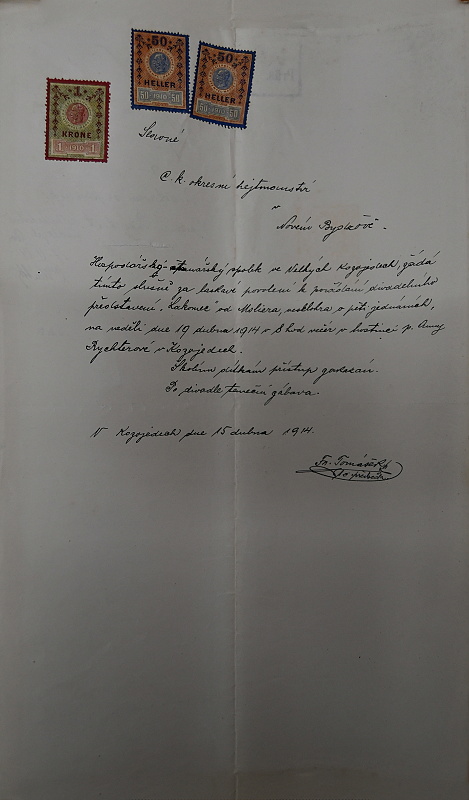 50
HELLER
50 1910 50
50
HELLER
50 1910 50
1
KRONE
1 1910 1
Slavné
C. k. okresní hejtmanství
v
Novém Bydžově.
Hospodářsko-čtenářský spolek ve Velkých Kozojedech, žádá
tímto slušně za laskavé povolení k pořádání divadelního
představení "Lakomec" od Moliera, veselohra o pěti jednáních,
na neděli dne 19 dubna 1914 v 8 hod večer v hostinci p. Anny
Rychterové v Kozojedech.
Školním dítkám přístup zakázán.
Po divadle taneční zábava.
V Kozojedech dne 15 dubna 1914.
Fr. Tomášek